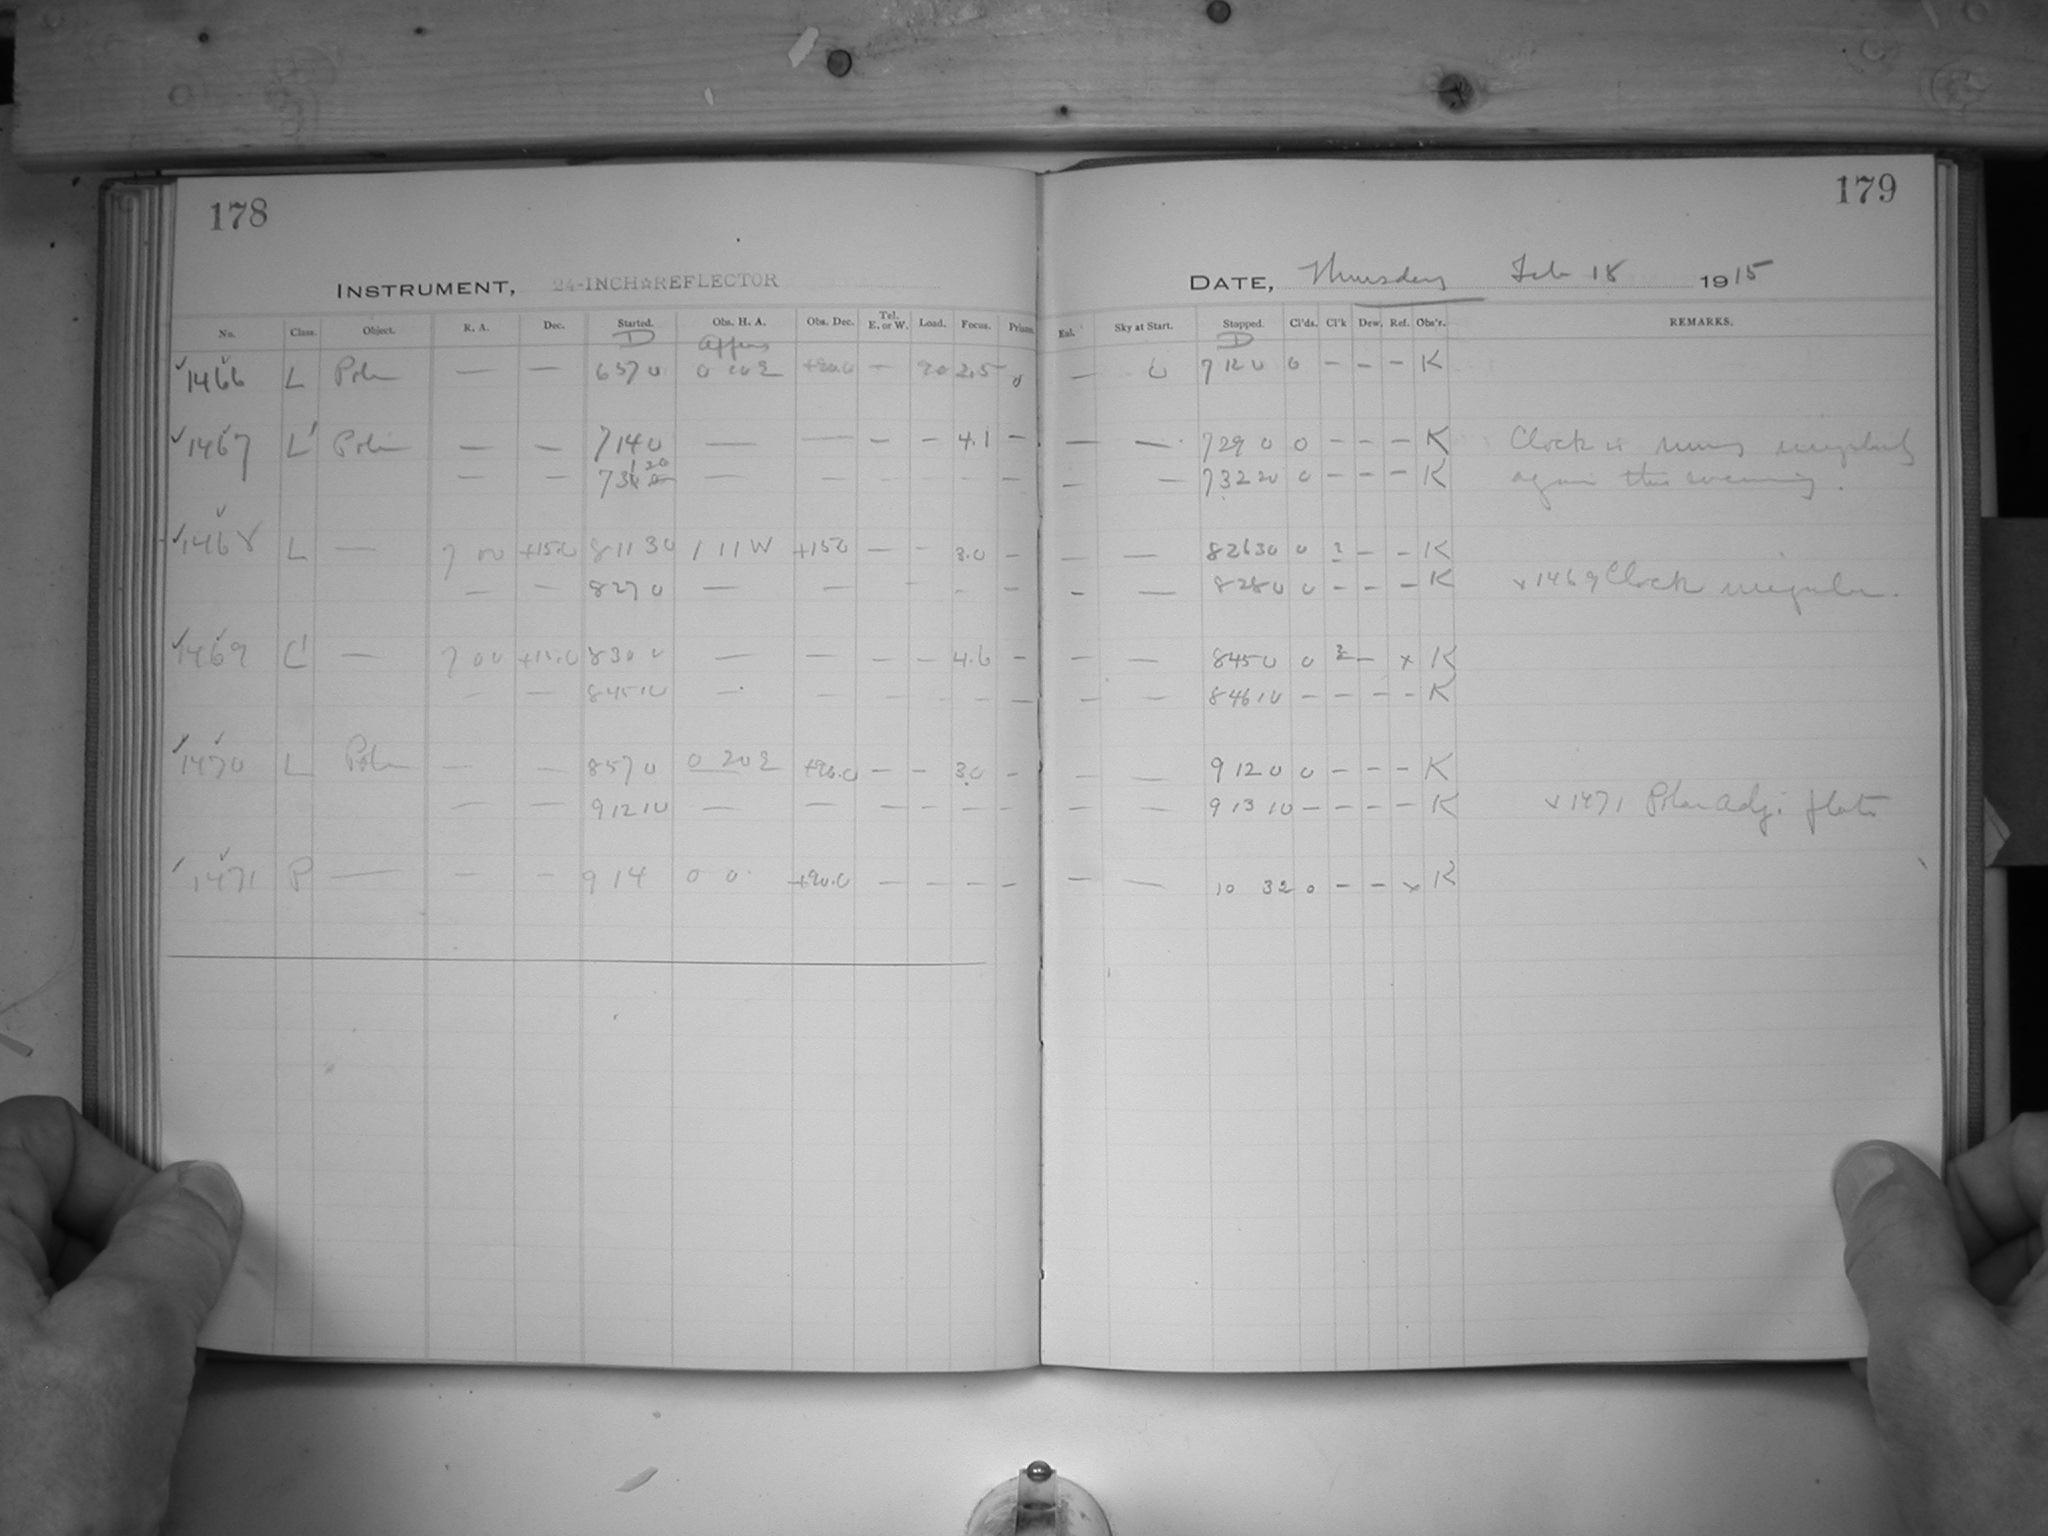 178
179
INSTRUMENT, 24-INCH☆REFLECTOR
DATE, Thursday Feb 18 1915
No. Class. Object. R. A. Dec. Started. Obs. H. A. Obs. Dec. Tel. E. or W. Load. Focus. Prism. Ext. Sky at Start. Stopped. Cl'ds. Cl'k Dew. Ref. Obs'r. REMARKS.
D D
1466 L — — 6 57 0 — 2.5 — 7 12 0 0 — — — K
1467 L' — — 7 14 0 — — — — 4.1 — — — 7 29 0 0 — — — K Clock is
— — — — — — 7 32 20 0 — — — K again this evening.
1468 L — 7 00 +15.0 8 11 30 1 11 W +15.0 — — 3.0 — — 8 26 30 0 ? — — K
— — 8 27 0 — — — — — — — 8 28 0 0 — — — K x 1469 Clock irregular.
1469 C' — 7 00 +15.0 8 30 0 — — — — 4.6 — — — 8 45 0 0 — x K
— — 8 45 10 — — — — — — 8 46 10 — — — — K
1470 L — — 8 57 0 0 20 E +90.0 — — 3.0 — — — 9 12 0 0 — — — K
— — 9 12 10 — — — — — — — — 9 13 10 — — — — K x 1471 Polar Adj. plate
1471 P — — — 9 14 0 0 +90.0 — — — — — — 10 32 0 — — x K